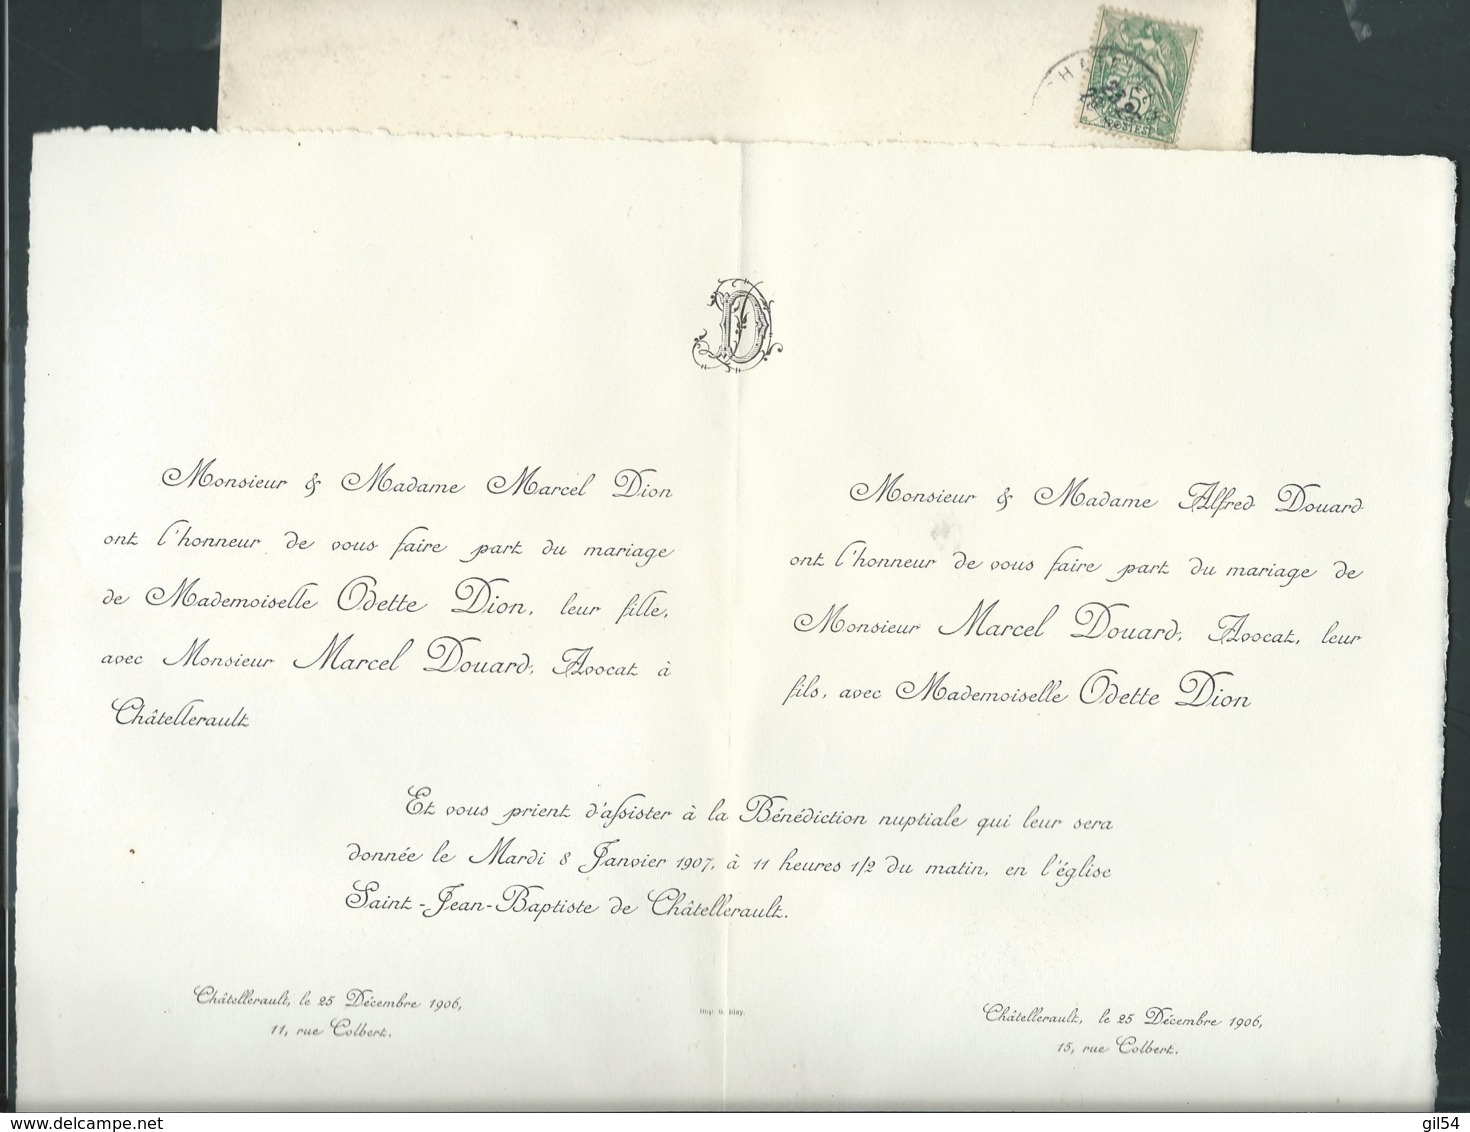 5
POSTES
D
Monsieur & Madame Marcel Dion
ont l'honneur de vous faire part du mariage
de Mademoiselle Odette Dion, leur fille,
avec Monsieur Marcel Douard, Avocat à
Châtellerault
Monsieur & Madame Alfred Douard
ont l'honneur de vous faire part du mariage de
Monsieur Marcel Douard, Avocat, leur
fils, avec Mademoiselle Odette Dion
Et vous prient d'assister à la Bénédiction nuptiale qui leur sera
donnée le Mardi 8 Janvier 1907, à 11 heures 1/2 du matin, en l'église
Saint-Jean-Baptiste de Châtellerault.
Châtellerault, le 25 Décembre 1906,
11, rue Colbert.
Imp. G. Blay.
Châtellerault, le 25 Décembre 1906,
15, rue Colbert.
www.delcampe.net
gil54